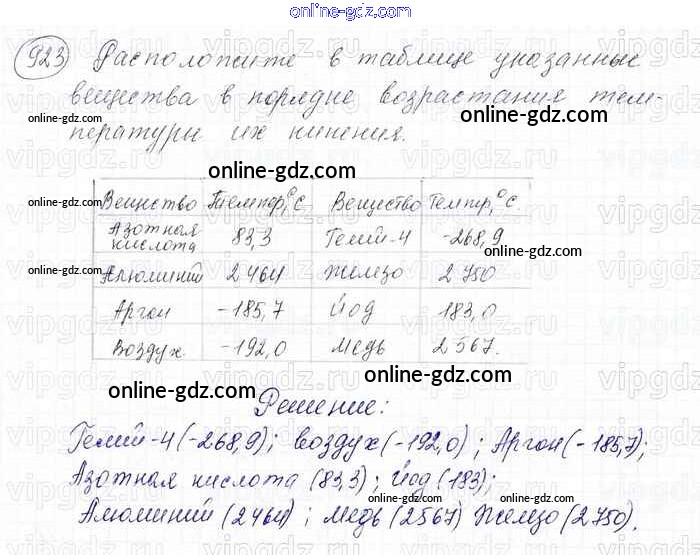 online-gdz.com
923 Расположите в таблице указанные
вещества в порядке возрастания тем-
пературы их кипения.
online-gdz.com
online-gdz.com
online-gdz.com
Вещество Темпер,°С Вещество Темпер,°С.
Азотная кислота 83,3 Гелий-4 -268,9
online-gdz.com
Алюминий 2464 Железо 2750
online-gdz.com
Аргон -185,7 Йод 183,0
Воздух. -192,0 Медь 2567.
online-gdz.com
online-gdz.com
Решение:
Гелий-4(-268,9); воздух(-192,0); Аргон(-185,7);
online-gdz.com
Азотная кислота (83,3); Йод (183);
online-gdz.com
online-gdz.com
Алюминий (2464); Медь (2567) Железо (2750).
online-gdz.com